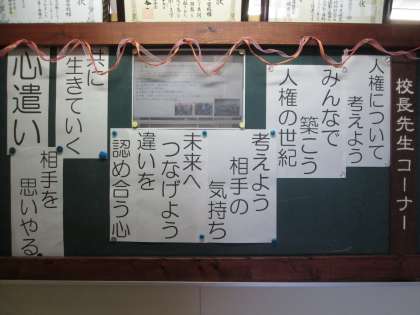 校長先生コーナー
人権について
考えよう
みんなで
築こう
人権の世紀
考えよう
相手の
気持ち
未来へ
つなげよう
違いを
認め合う心
共に
生きていく
心遣い
相手を
思いやる